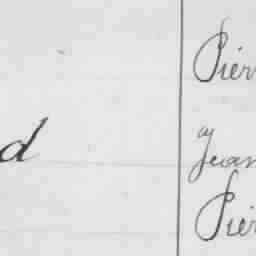 Pier
d
Jean
Pier